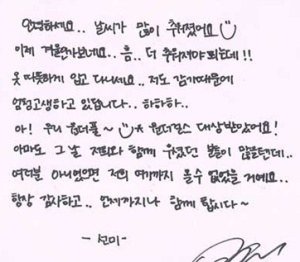 안녕하세요.. 날씨가 많이 추워졌어요
이제 겨울인가보네요.. 흠.. 더 추워져야 되는데!!
옷 따뜻하게 입고 다니세요.. 저도 감기때문에
엄청고생하고 있답니다.. 하하하..
아! 우리 원더풀~ 원더걸스 대상받았어요!
아마도 그 날 저희와 함께 우셨던 분들이 많을텐데..
여러분 아니었으면 저희 여기까지 올수 없었을 거예요..
항상 감사하고.. 언제까지나 함께 합시다~
- 선미 -